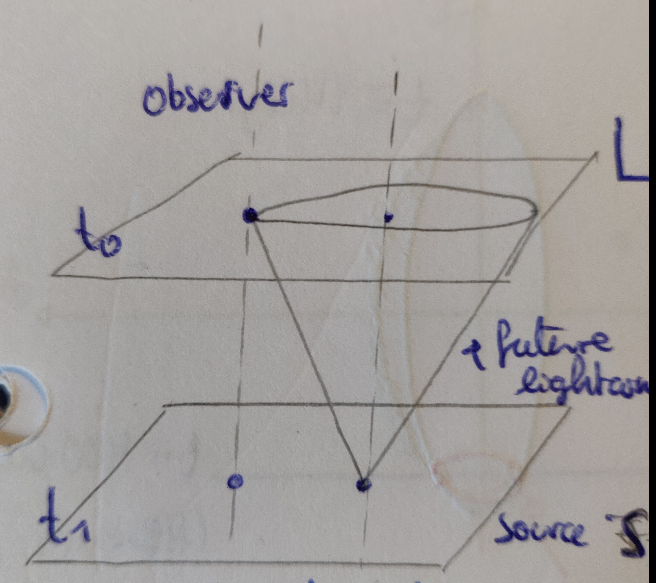 observer
L
t₀
future
lightcon
t₁
source S